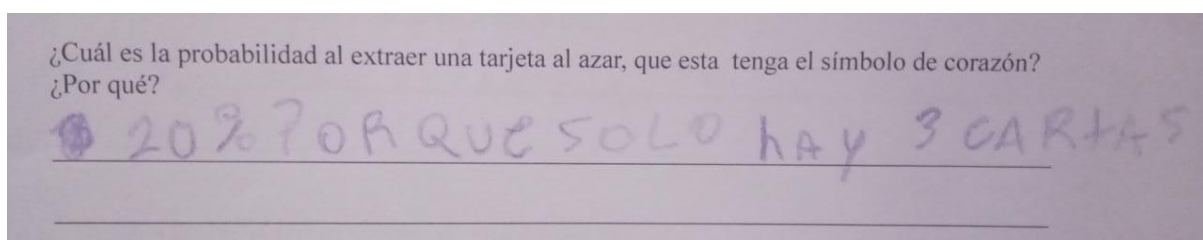 ¿Cuál es la probabilidad al extraer una tarjeta al azar, que esta tenga el símbolo de corazón?
¿Por qué?
20% PORQUE SOLO hAY 3 CARtAS